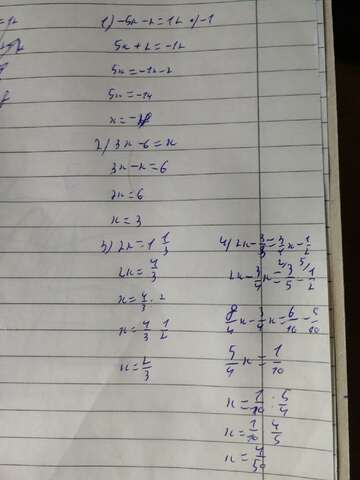 1) -5x-2=12 /·(-1)
5x+2=-12
5x=-12-2
5x=-14
2) 3x-6=x
3x-x=6
2x=6
x=3
3) 2x=1 1/3
2x=4/3
x=4/3:2
x=4/3 · 1/2
x=2/3
2x-3/4x=3/5-1/2
8/4x-3/4x=6/10-5/10
5/4x=1/10
x=1/10:5/4
x=1/10·4/5
x=4/50